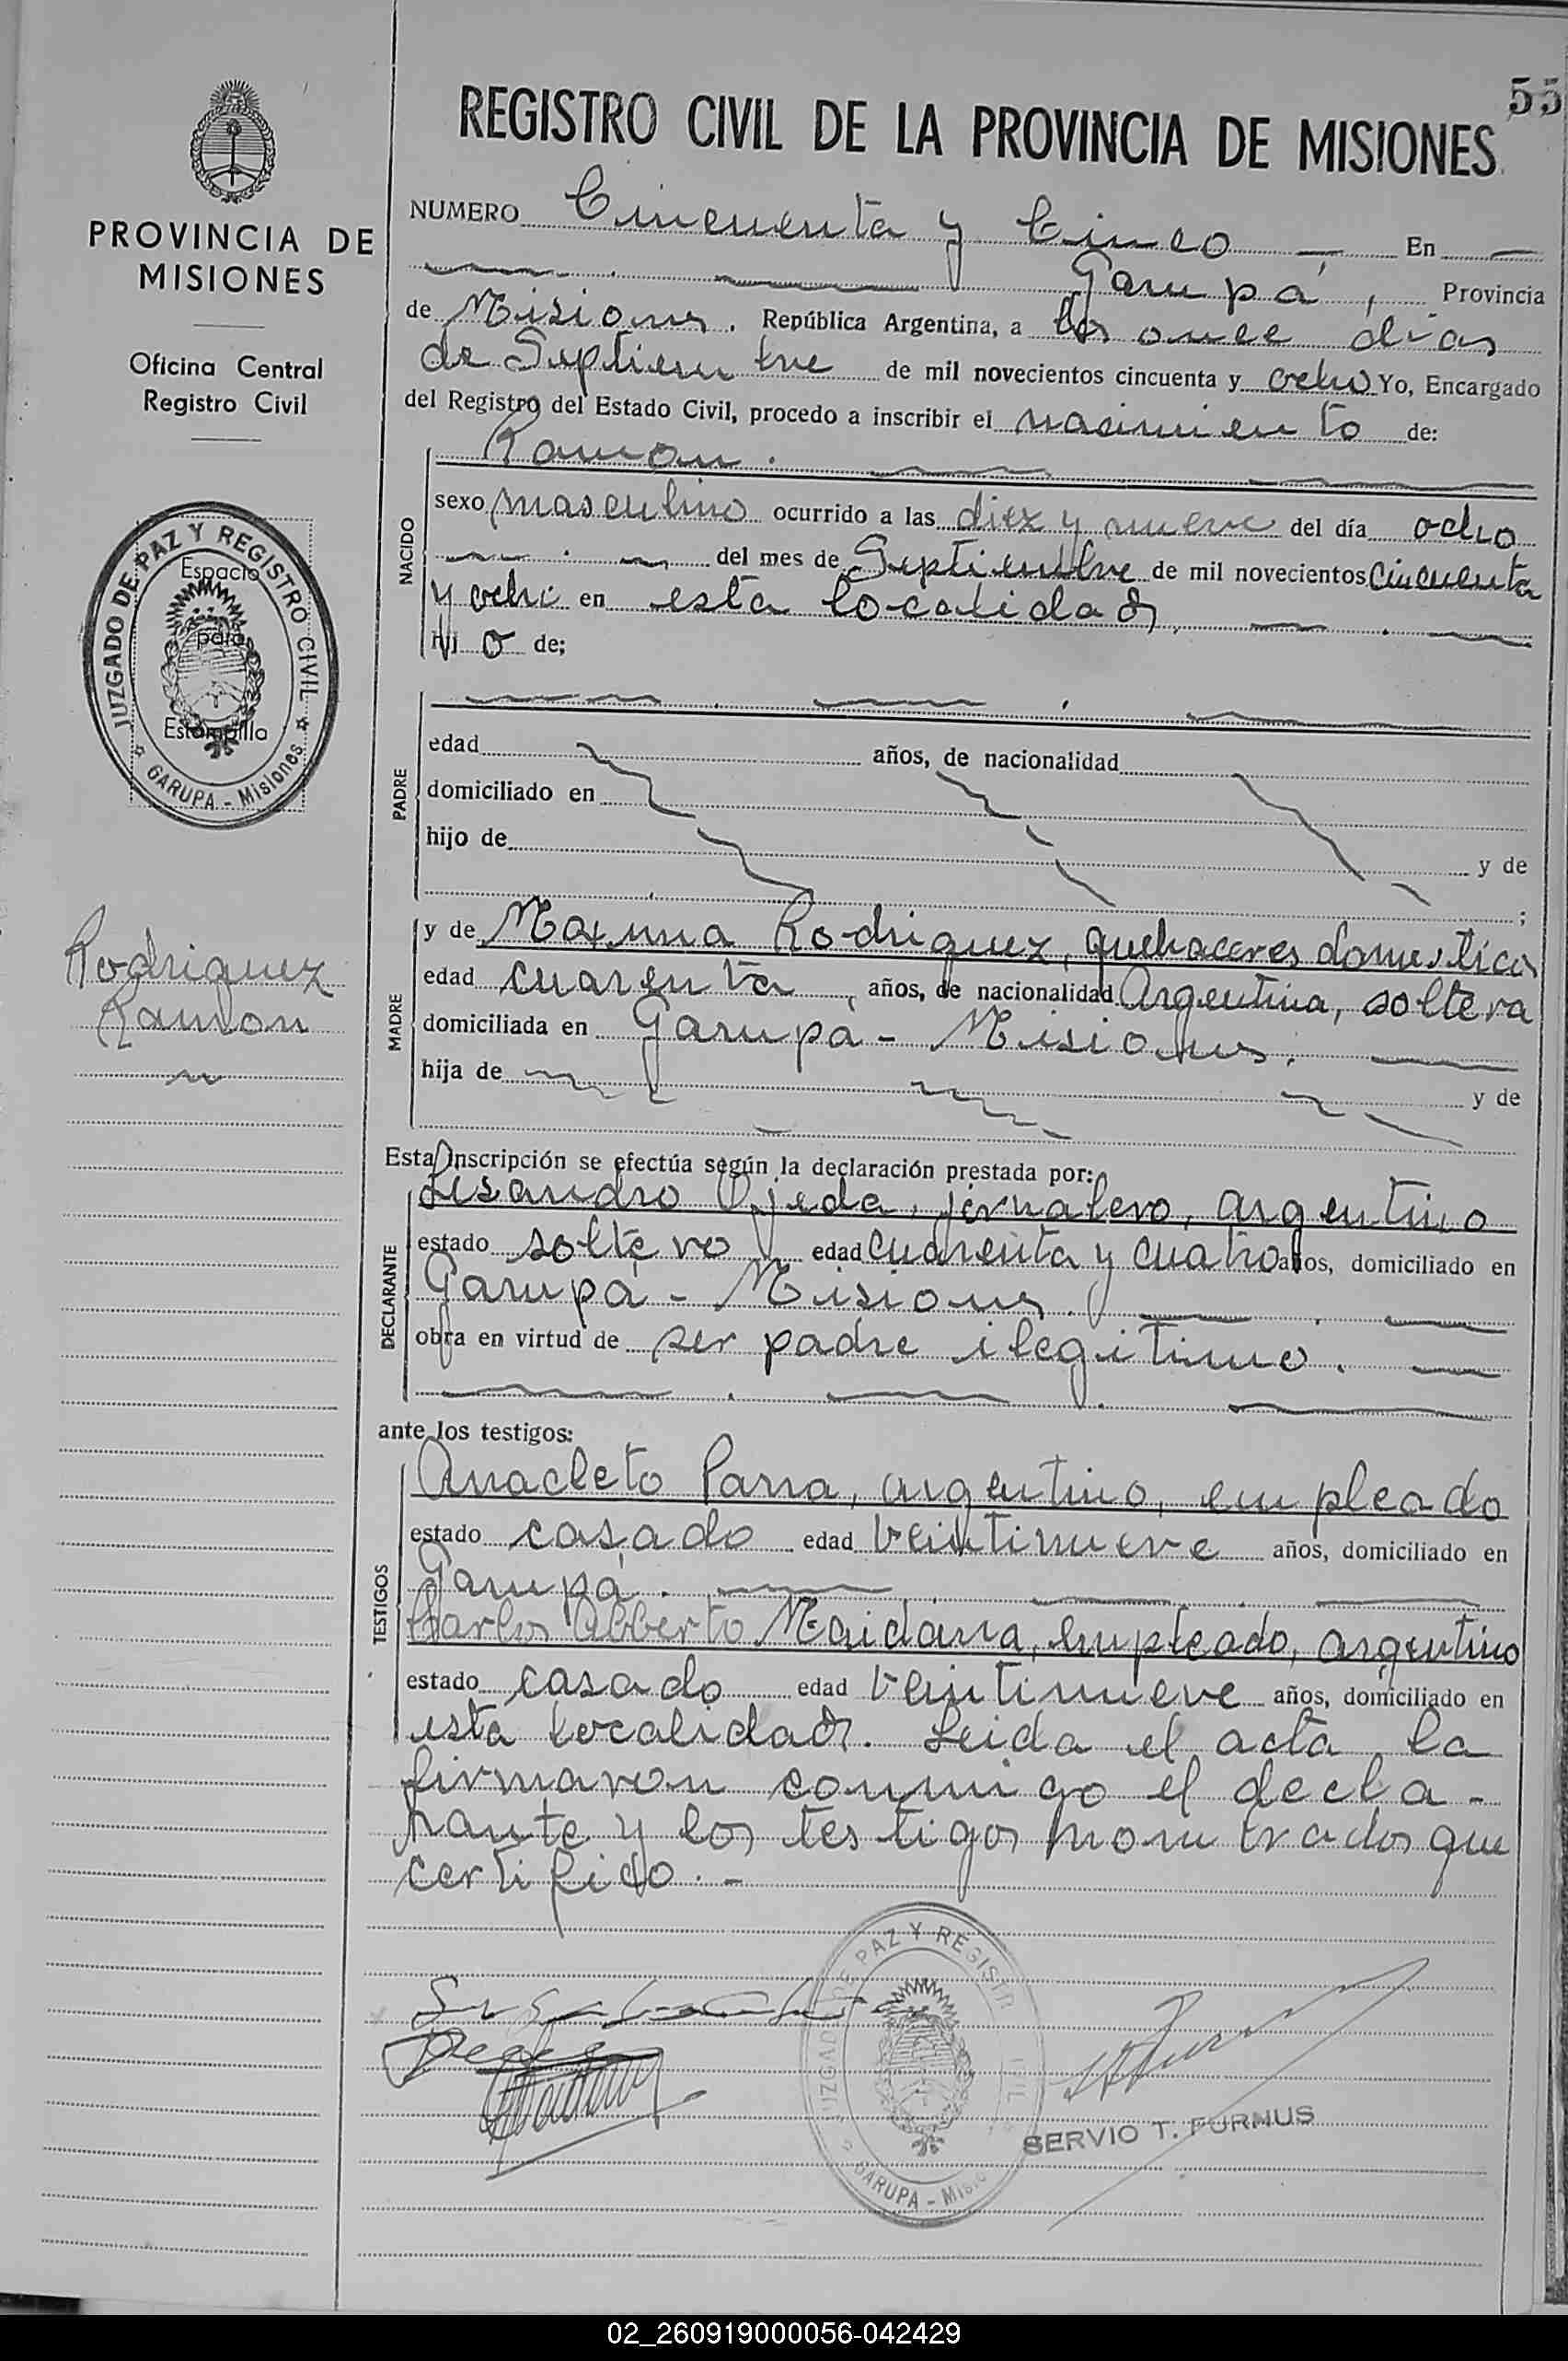 55
REGISTRO CIVIL DE LA PROVINCIA DE MISIONES
PROVINCIA DE
MISIONES
Oficina Central
Registro Civil
JUZGADO DE PAZ Y REGISTRO CIVIL
GARUPA - Misiones
Espacio
para
Estampilla
Rodriguez
Ramon
NUMERO Cincuenta y Cinco En
Garupá, Provincia
de Misiones. República Argentina, a los once dias
de Septiembre de mil novecientos cincuenta y ocho Yo, Encargado
del Registro del Estado Civil, procedo a inscribir el nacimiento de:
Ramon.
NACIDO
sexo masculino ocurrido a las diez y nueve del día ocho
del mes de Septiembre de mil novecientos cincuenta
y ocho en esta localidad.
hijo de;
PADRE
edad años, de nacionalidad
domiciliado en
hijo de y de
;
MADRE
y de Maxima Rodriguez, quehaceres domesticos
edad cuarenta, años, de nacionalidad Argentina, soltera
domiciliada en Garupá - Misiones.
hija de y de
Esta inscripción se efectúa según la declaración prestada por:
DECLARANTE
Lisandro Ojeda, jornalero, argentino
estado soltero edad cuarenta y cuatro años, domiciliado en
Garupá - Misiones.
obra en virtud de ser padre ilegitimo.
ante los testigos:
TESTIGOS
Anacleto Parra, argentino, empleado
estado casado edad veintinueve años, domiciliado en
Garupá.
Carlos Alberto Maidana, empleado, argentino
estado casado edad veintinueve años, domiciliado en
esta localidad. Leida el acta la
firmaron conmigo el decla-
rante y los testigos nombrados que
certifico.-
JUZGADO DE PAZ Y REGISTR
GARUPA - Misio
SERVIO T. FURNUS
02_260919000056-042429